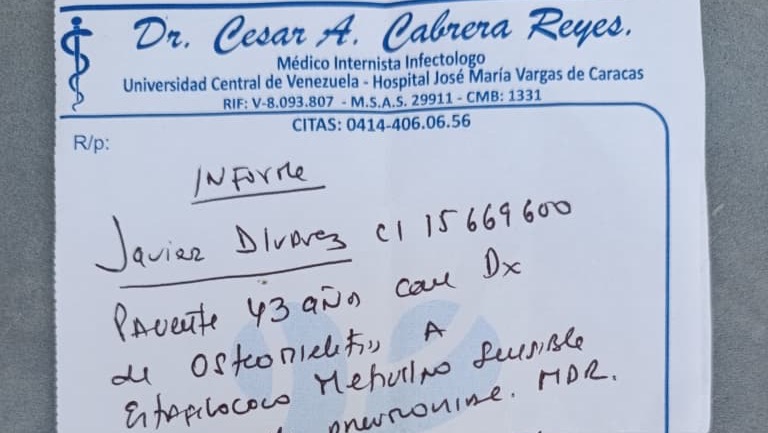 Dr. Cesar A. Cabrera Reyes.
Médico Internista Infectologo
Universidad Central de Venezuela - Hospital José María Vargas de Caracas
RIF: V-8.093.807 - M.S.A.S. 29911 - CMB: 1331
CITAS: 0414-406.06.56
R/p:
INForme
Javier Alvarez CI 15669600
Paciente 43 años con Dx
de Osteomielitis A
Estafilococo Meticilino Sensible
pneumoniae. MDR.